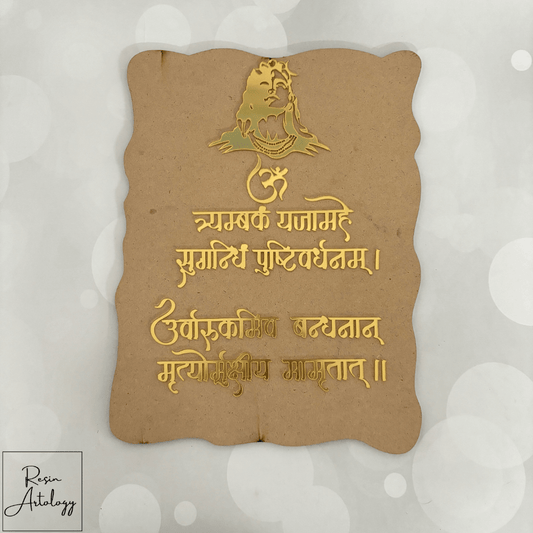 ॐ
त्र्यम्बकं यजामहे
सुगन्धिं पुष्टिवर्धनम् ।
उर्वारुकमिव बन्धनान्
मृत्योर्मुक्षीय मामृतात् ॥
Resin
Artology